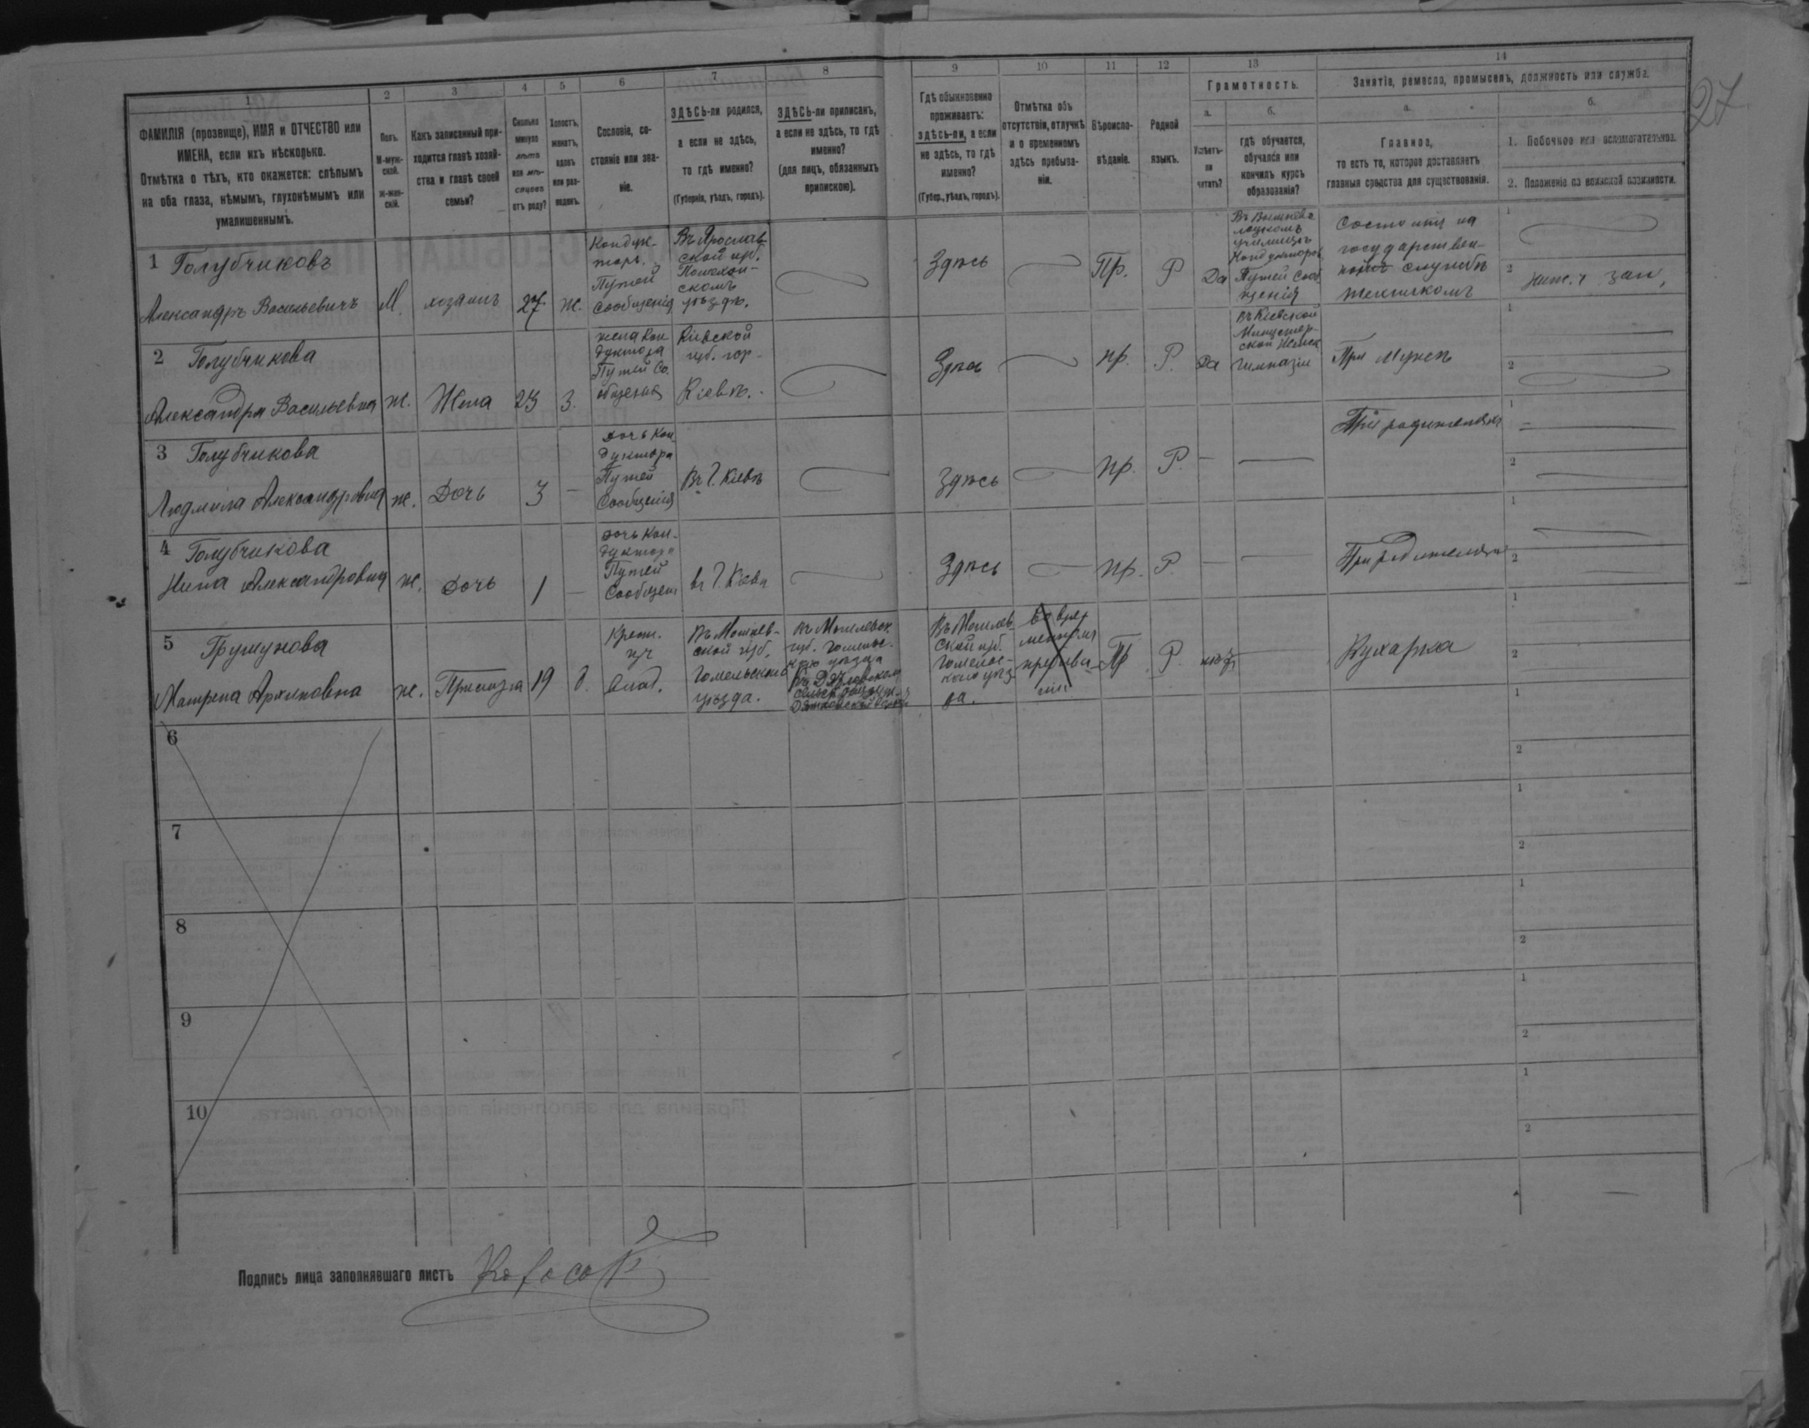 27
1
2
3
4
5
6
7
8
9
10
11
12
13
14
ФАМИЛІЯ (прозвище), ИМЯ и ОТЧЕСТВО или
ИМЕНА, если ихъ нѣсколько.
Отмѣтка о тѣхъ, кто окажется: слѣпымъ
на оба глаза, нѣмымъ, глухонѣмымъ или
умалишеннымъ.
Полъ.
М-муж-
ской.
Ж-жен-
скій.
Какъ записанный при-
ходится главѣ хозяй-
ства и главѣ своей
семьи?
Сколько
минуло
лѣтъ
или мѣ-
сяцевъ
отъ роду?
Холостъ,
женатъ,
вдовъ
или раз-
веденъ.
Сословіе, со-
стояніе или зва-
ніе.
ЗДѢСЬ-ли родился,
а если не здѣсь,
то гдѣ именно?
(Губернія, уѣздъ, городъ).
ЗДѢСЬ-ли приписанъ,
а если не здѣсь, то гдѣ
именно?
(для лицъ, обязанныхъ
припискою).
Гдѣ обыкновенно
проживаетъ:
здѣсь-ли, а если
не здѣсь, то гдѣ
именно?
(Губер., уѣздъ, городъ).
Отмѣтка объ
отсутствіи, отлучкѣ
и о временномъ
здѣсь пребыва-
ніи.
Вѣроиспо-
вѣданіе.
Родной
языкъ.
Грамотность.
а.
Умѣетъ-
ли
читать?
б.
гдѣ обучается,
обучался или
кончилъ курсъ
образованія?
Занятіе, ремесло, промыселъ, должность или служба.
а.
Главное,
то есть то, которое доставляетъ
главныя средства для существованія.
б.
1. Побочное или вспомогательное.
2. Положеніе по воинской повинности.
1 Голубчиковъ
Александръ Васильевичъ
М.
хозяинъ
27
ж.
Кондук-
торъ
Путей
Сообщенія
Въ Ярослав-
ской губ.
Пошехон-
скомъ
уѣздѣ.
Здѣсь
Пр.
Р
Да
училищѣ
Кондукторовъ
Путей Сооб
щенія
Состоитъ на
государствен-
ной службѣ
техникомъ
1
2
2 Голубчикова
Александра Васильевна
ж.
Жена
23
З.
жена Кон
дуктора
Путей Со.
общенія
Кіевской
губ. гор.
Кіевѣ.
Здѣсь
пр.
Р.
Да
Въ Кіевской
Министер-
ской Женск
гимназіи
При мужѣ
1
2
3 Голубчикова
Людмила Александровна
ж.
Дочь
3
дочь Кон
дуктора
Путей
Сообщенія
Въ Г. Кіевѣ
Здѣсь
пр.
Р.
При родителяхъ
1
2
4 Голубчикова
Нина Александровна
ж.
Дочь
1
дочь Кон-
дуктора
Путей
Сообщен
въ Г. Кіевѣ
Здѣсь
пр.
Р.
При родителяхъ
1
2
5
Ж.
Прислуга
19
д.
Крест.
изъ
влад.
Въ Могилев-
ской губ.
Гомельскаго
уѣзда.
Въ Могилевск
губ. Гомельс-
каго уѣзда
Въ Могилев-
ской губ.
Гомельс-
комъ уѣз
да.
Пр
Р.
нѣтъ
Кухарка
1
2
6
1
2
7
1
2
8
1
2
9
1
2
10
1
2
Подпись лица заполнявшаго листъ